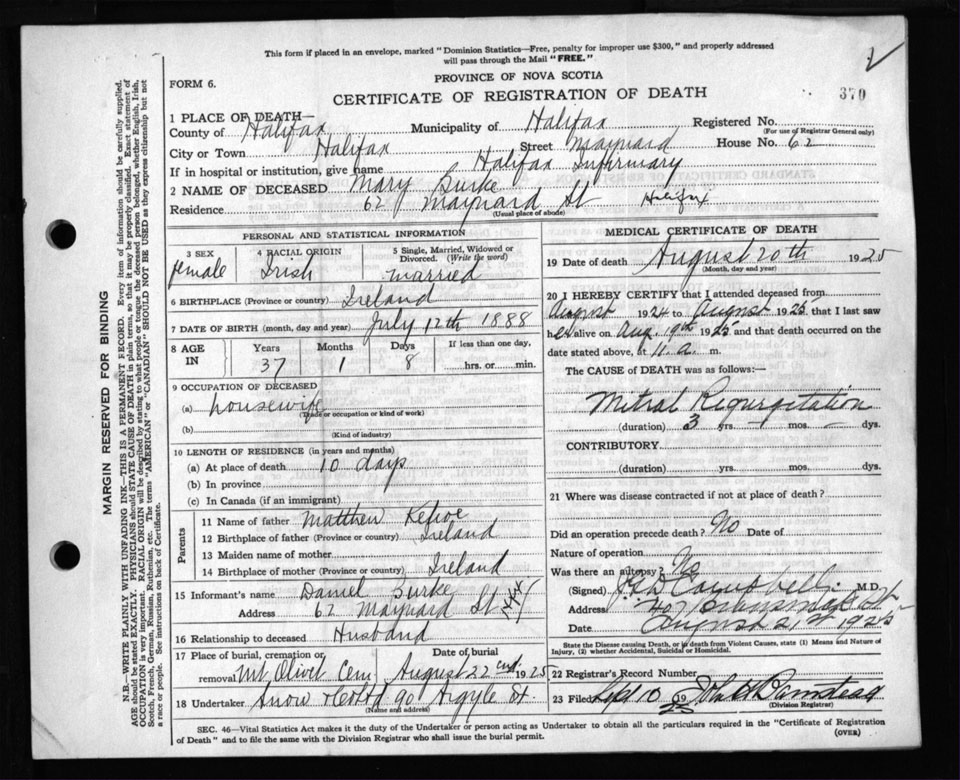 This form if placed in an envelope, marked "Dominion Statistics—Free, penalty for improper use $300," and properly addressed
will pass through the Mail "FREE."
PROVINCE OF NOVA SCOTIA
FORM 6.
CERTIFICATE OF REGISTRATION OF DEATH
370
1 PLACE OF DEATH—
County of Halifax Municipality of Halifax Registered No.
(For use of Registrar General only)
City or Town Halifax Street Maynard House No. 62
If in hospital or institution, give name Halifax Infirmary
2 NAME OF DECEASED Mary Burke
Residence 62 Maynard St Halifax
(Usual place of abode)
PERSONAL AND STATISTICAL INFORMATION
3 SEX female
4 RACIAL ORIGIN Irish
5 Single, Married, Widowed or Divorced. (Write the word) married
6 BIRTHPLACE (Province or country) Ireland
7 DATE OF BIRTH (month, day and year) July 12th 1888
8 AGE IN Years 37 Months 1 Days 8 If less than one day, hrs. or min.
9 OCCUPATION OF DECEASED
(a) housewife
(Trade or occupation or kind of work)
(b)
(Kind of industry)
10 LENGTH OF RESIDENCE (in years and months)
(a) At place of death 10 days
(b) In province
(c) In Canada (if an immigrant)
Parents
11 Name of father Matthew Kehoe
12 Birthplace of father (Province or country) Ireland
13 Maiden name of mother
14 Birthplace of mother (Province or country) Ireland
15 Informant's name Daniel Burke
Address 62 Maynard St Hfx
16 Relationship to deceased Husband
17 Place of burial, cremation or removal Mt Olivet Cem Date of burial August 22nd 1925
18 Undertaker Snow & Co Ltd 90 Argyle St.
(Name and address)
MEDICAL CERTIFICATE OF DEATH
19 Date of death August 20th 1925
(Month, day and year)
20 I HEREBY CERTIFY that I attended deceased from
August 1924 to August 1925 that I last saw
er alive on Aug. 19th 1925 and that death occurred on the
date stated above, at 11 a. m.
The CAUSE of DEATH was as follows:—
Mitral Regurgitation
(duration) 3 yrs. — mos. — dys.
CONTRIBUTORY.
(duration) yrs. mos. dys.
21 Where was disease contracted if not at place of death?
Did an operation precede death? No Date of
Nature of operation
Was there an autopsy? No
(Signed) Campbell M.D.
Address 407 Brunswick St
Date August 21st 1925
State the Disease causing Death, or in death from Violent Causes, state (1) Means and Nature of
Injury, (2) whether Accidental, Suicidal or Homicidal.
22 Registrar's Record Number
23 Filed Sept 10 1925 John H Barnstead
(Division Registrar)
SEC. 46—Vital Statistics Act makes it the duty of the Undertaker or person acting as Undertaker to obtain all the particulars required in the "Certificate of Registration
of Death" and to file the same with the Division Registrar who shall issue the burial permit.
(OVER)
MARGIN RESERVED FOR BINDING
N.B.—WRITE PLAINLY WITH UNFADING INK—THIS IS A PERMANENT RECORD. Every item of information should be carefully supplied.
AGE should be stated EXACTLY. PHYSICIANS should STATE CAUSE OF DEATH in plain terms, so that it may be properly classified. Exact statement of
OCCUPATION is very important. RACIAL ORIGIN will be described by stating to what people or tongue the deceased person belonged, whether English, Irish,
Scotch, French, German, Russian, Ruthenian, etc. The terms "AMERICAN" or "CANADIAN" SHOULD NOT BE USED as they express citizenship but not
a race or people. See instructions on back of Certificate.